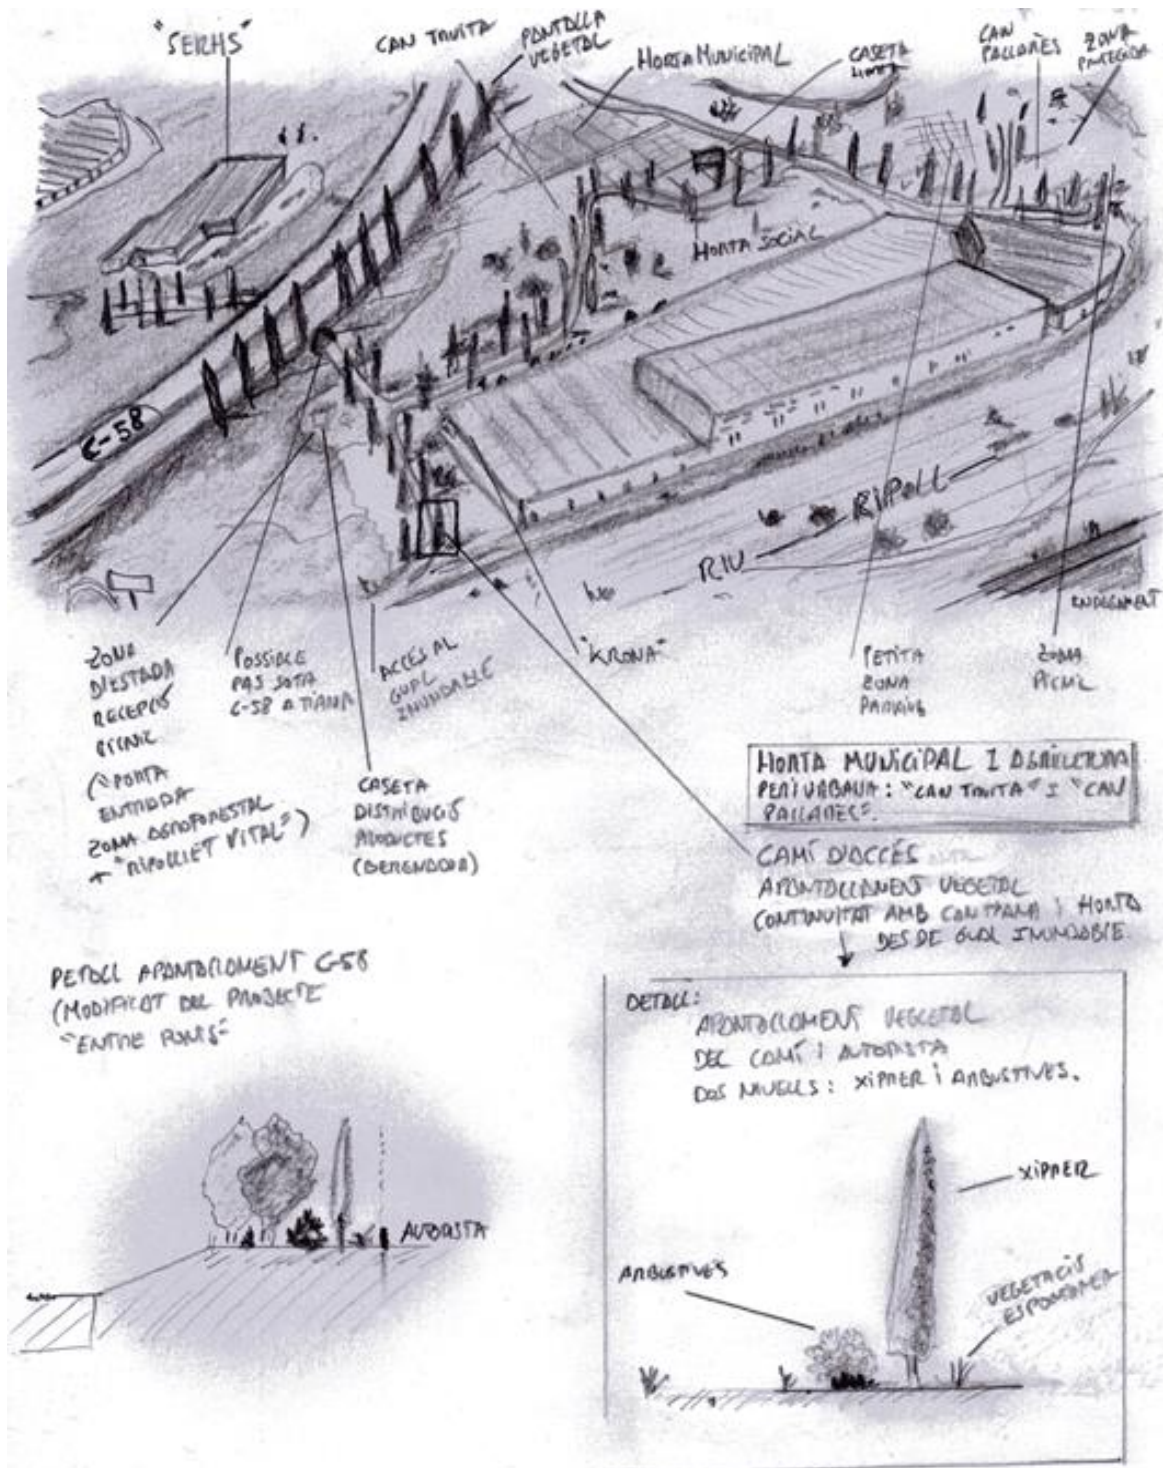 "SERHS"
CAN TRUITA
PANTALLA
VEGETAL
HORTA MUNICIPAL
CASETA
HORTA
CAN
PALLARÈS
ZONA
PROTEGIDA
HORTA SOCIAL
C-58
RIU RIPOLL
ENDEGAMENT
ZONA
D'ESTADA
RECEPCIÓ
PICNIC
(PORTA
ENTRADA
ZONA AGROFORESTAL
+ "RIPOLLET VITAL")
POSSIBLE
PAS SOTA
C-58 A TIANA
CASETA
DISTRIBUCIÓ
PRODUCTES
(BERENADOR)
ACCÉS AL
GUAL
INUNDABLE
"KRONA"
PETITA
ZONA
PARKING
ZONA
PICNIC
HORTA MUNICIPAL I AGRICULTURA
PERIURBANA: "CAN TRUITA" I "CAN
PALLARÈS".
CAMÍ D'ACCÉS
APANTALLAMENT VEGETAL
CONTINUITAT AMB CAN TIANA I HORTA
DES DE GUAL INUNDABLE.
DETALL APANTALLAMENT C-58
(MODIFICAT DEL PROJECTE
"ENTRE PONTS"
AUTOPISTA
DETALL:
APANTALLAMENT VEGETAL
DEL CAMÍ I AUTOPISTA
DOS NIVELLS: XIPRER I ARBUSTIVES.
XIPRER
ARBUSTIVES
VEGETACIÓ
ESPONTANEA